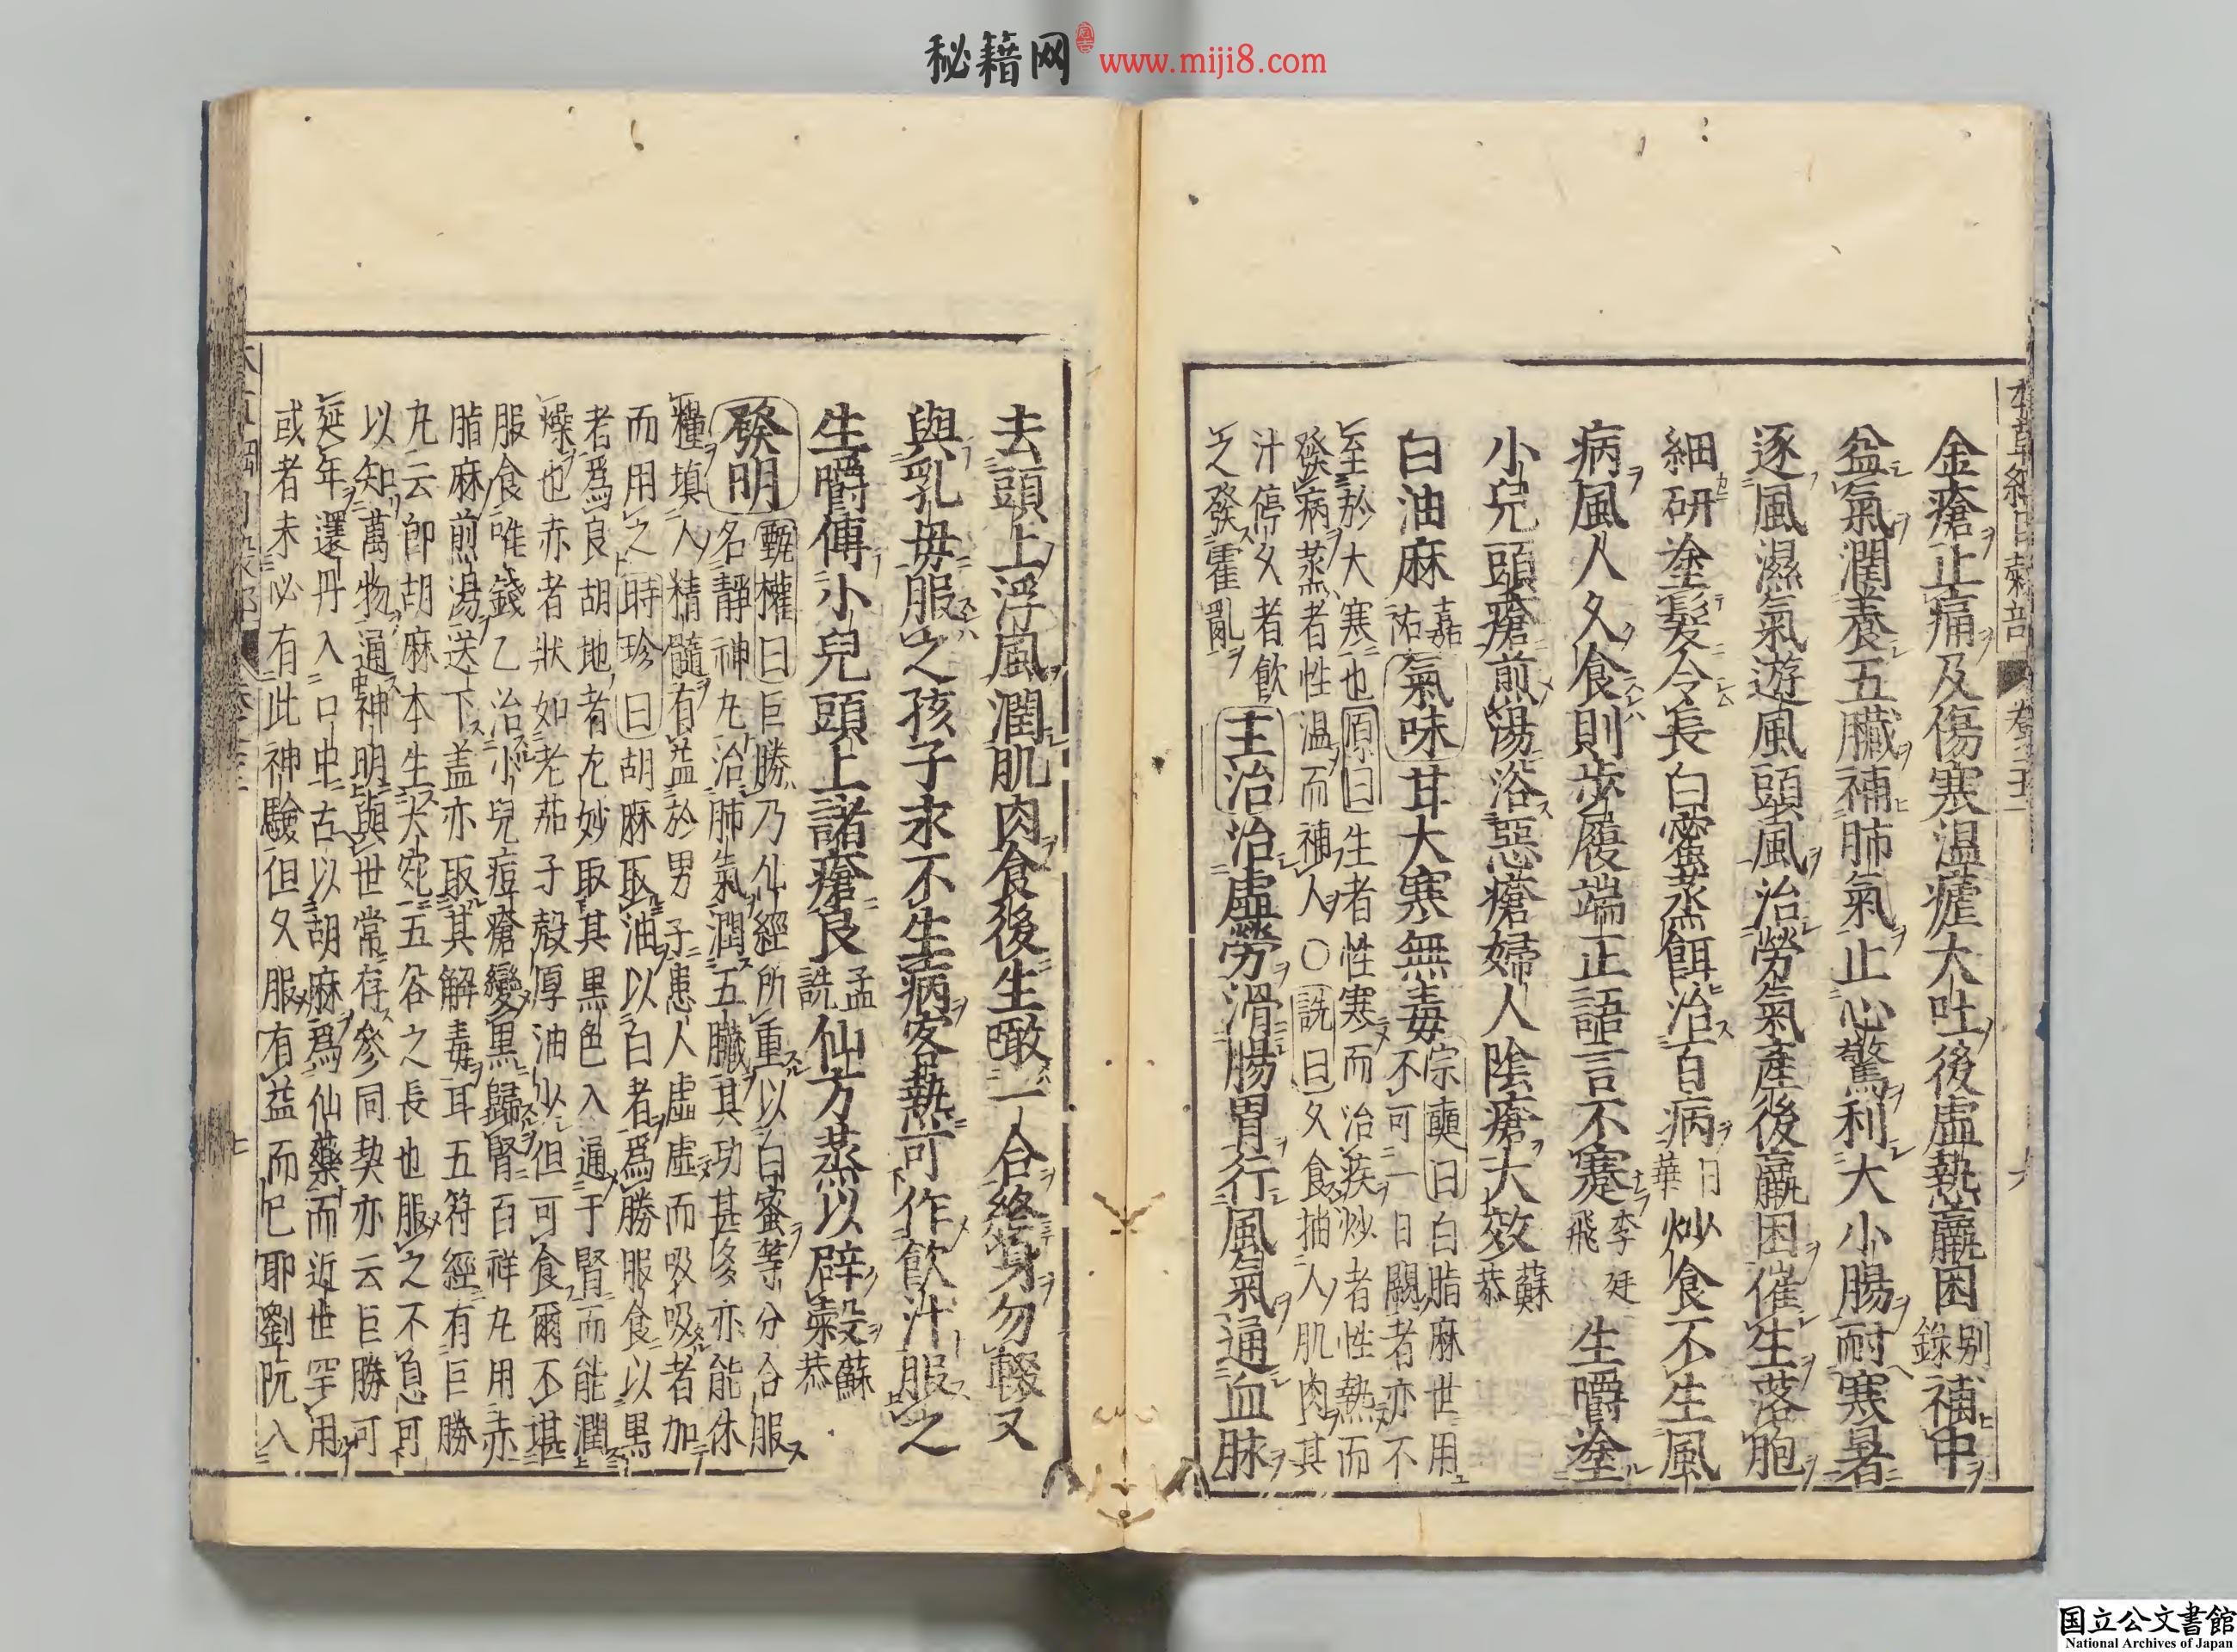 秘籍网 www.miji8.com
金瘡止痛及傷寒溫瘧大吐後虛熱羸困別錄補中
益氣潤養五臟補肺氣止心驚利大小腸耐寒暑
逐風濕氣遊風頭風治勞氣產後羸困催生落胞
細研塗髮令長白蜜蒸餌治百病日華炒食不生風
病風人久食則步履端正語言不蹇李廷飛生嚼塗
小兒頭瘡煎湯浴惡瘡婦人陰瘡大效蘇恭
白油麻嘉祐氣味甘大寒無毒宗奭曰白脂麻世用
不可一日闕者亦不
至於大寒也原曰生者性寒而治疾炒者性熱而
發病蒸者性溫而補人○詵曰久食抽人肌肉其
汁停久者飲
之發霍亂主治治虛勞滑腸胃行風氣通血脉
去頭上浮風潤肌肉食後生啖一合終身勿輟又
與乳母服之孩子永不生病客熱可作飲汁服之
生嚼傅小兒頭上諸瘡良孟詵仙方蒸以辟穀蘇恭
發明甄權曰巨勝乃仙經所重以白蜜等分合服
名靜神丸治肺氣潤五臟其功甚多亦能休
糧填人精髓有益於男子患人虛虛而吸吸者加
而用之時珍曰胡麻取油以白者爲勝服食以黑
者爲良胡地者尤妙取其黑色入通于腎而能潤
燥也赤者狀如老茄子殼厚油少但可食爾不堪
服食唯錢乙治小兒痘瘡變黑歸腎百祥丸用赤
脂麻煎湯送下盖亦取其解毒耳五符經有巨勝
丸云卽胡麻本生大宛五谷之長也服之不息可
以知萬物通神明與世常存參同契亦云巨勝可
延年還丹入口中古以胡麻爲仙藥而近世罕用
或者未必有此神驗但久服有益而已耶劉阮入
国立公文書館
National Archives of Japan